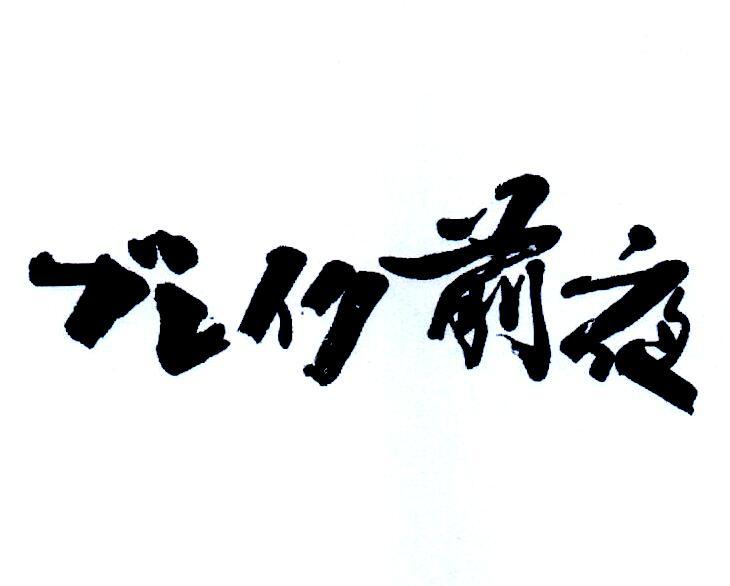 ブレイク前夜